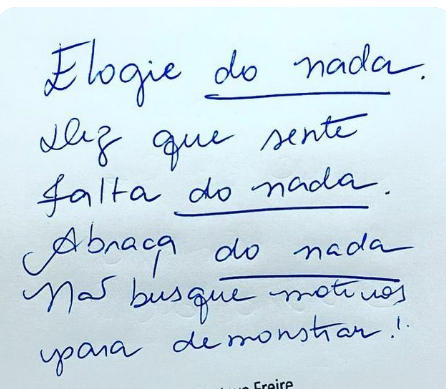 Elogie do nada.
Diz que sente
falta do nada.
Abraça do nada
Não busque motivos
para demonstrar!
Freire